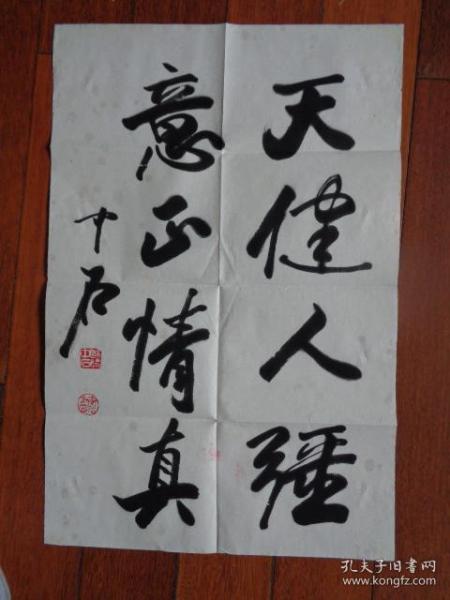 天健人彊
意正情真
中石
孔夫子旧书网
www.kongfz.com